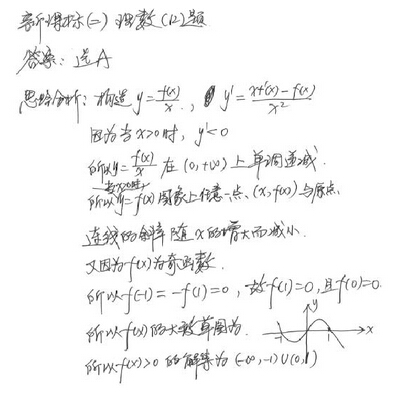 新课标(二)理数(12)题
答案：选A
思路分析：构造 y=f(x)/x， y'=(xf'(x)-f(x))/x²
因为当x>0时，y'<0
所以y=f(x)/x 在(0,+∞)上单调递减.
当x>0时，
所以y=f(x)图象上任意一点(x,f(x))与原点
连线的斜率随x的增大而减小.
又因为f(x)为奇函数.
所以f(-1)=-f(1)=0，故f(1)=0，且f(0)=0.
所以f(x)的大致草图为. y x
所以f(x)>0的解集为(-∞,-1)∪(0,1)